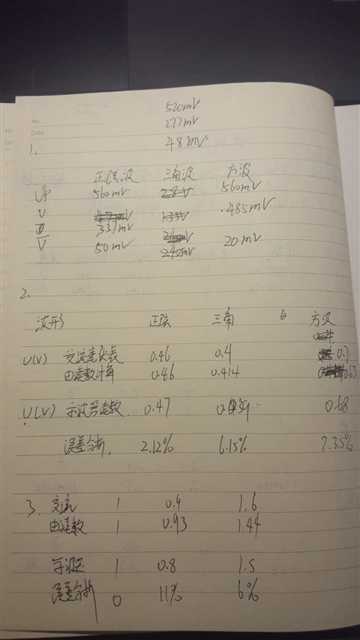 520mV
277mV
1.
48mV
正弦波 三角波 方波
560mV 560mV
V .485mV
337mV
V 50mV 20mV
2.
波形 正弦 三角 方波
U(V) 交流毫伏表 0.46 0.4 0.7
由读数计算 0.46 0.414
U(V) 示波器读数 0.47 0.68
误差分析 2.12% 6.15% 7.35%
3. 交流 1 0.9 1.6
由读数 1 0.93 1.44
示波器 1 0.8 1.5
误差分析 0 11% 6%